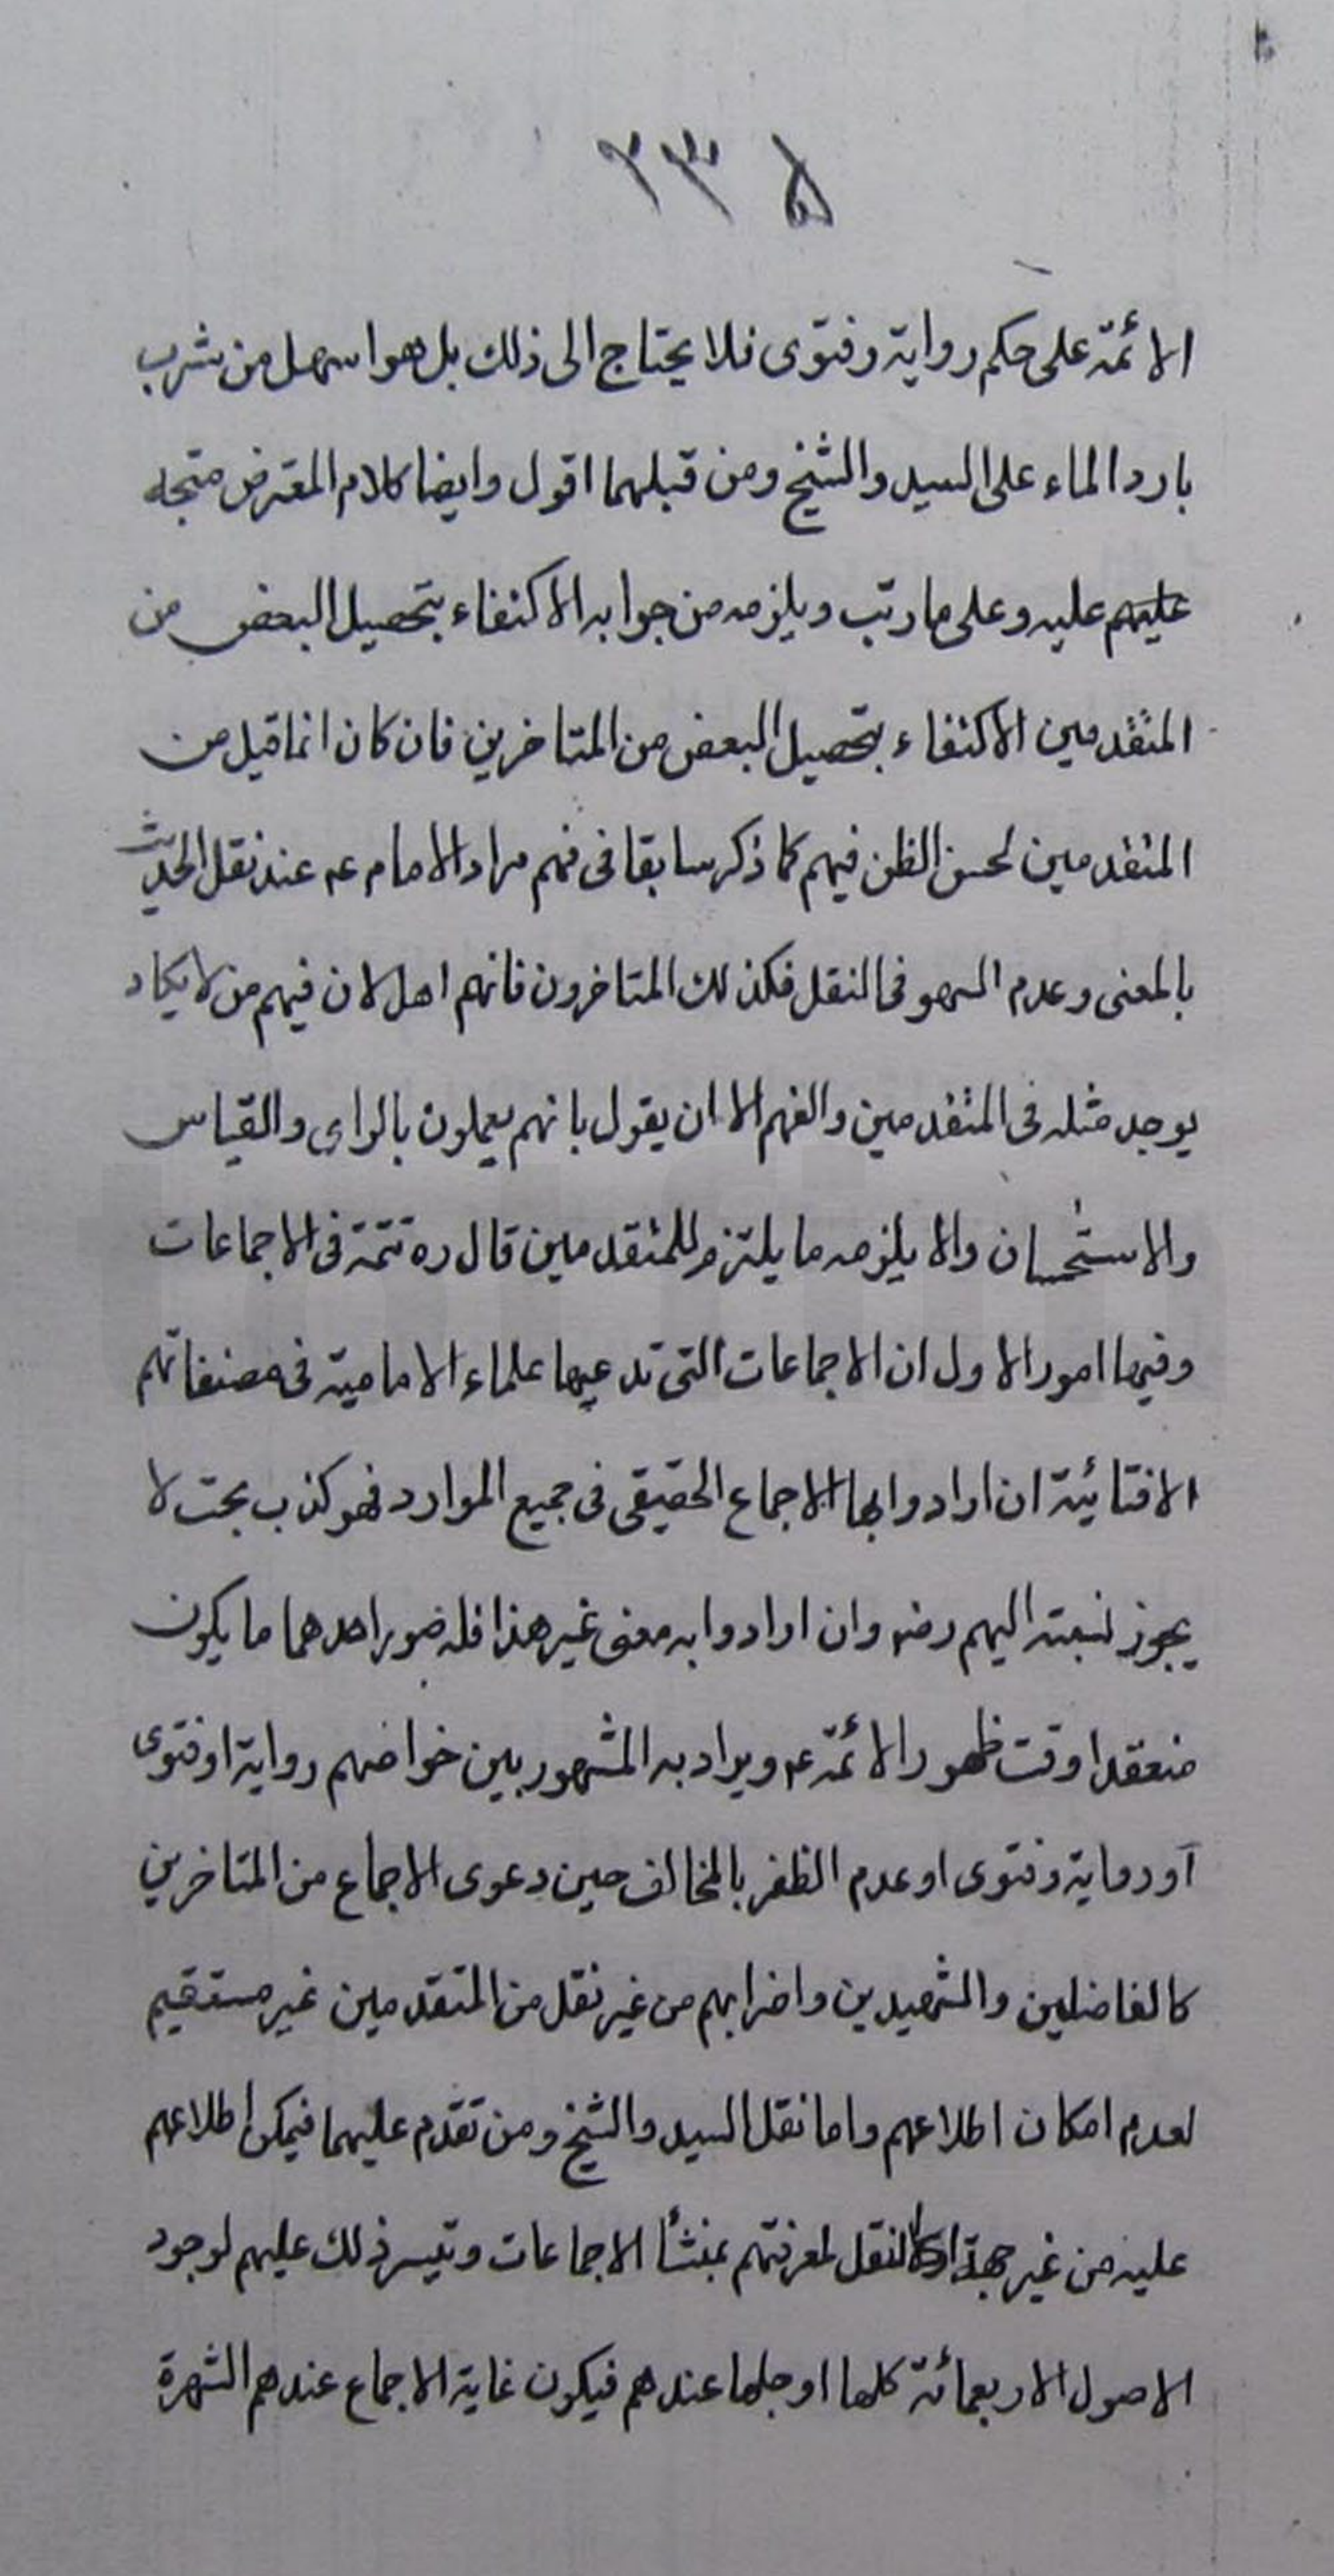 ٢٣۵
الائمّة على حكم رواية وفتوى فلا يحتاج الى ذلك بل هو اسهل من شرب
بارد الماء على السيد والشيخ ومن قبلهما اقول وايضا كلام المعترض متجه
عليهم عليه وعلى ما رتب ويلزمه من جوابه الاكتفاء بتحصيل البعض من
المتقدمين الاكتفاء بتحصيل البعض من المتاخرين فان كان انما قيل من
المتقدمين لحسن الظن فيهم كما ذكر سابقا فى فهم مراد الامام عه عند نقل الحديث
بالمعنى وعدم السهو فى النقل فكذلك المتاخرون فانهم اهل لان فيهم من لا يكاد
يوجد مثله فى المتقدمين والفهم الا ان يقول بانهم يعملون بالراى والقياس
والاستحسان والا يلزمه ما يلتزم للمتقدمين قال ره تتمة فى الاجماعات
وفيها امور الاول ان الاجماعات التى تدعيها علماء الامامية فى مصنفاتهم
الافتائية ان ارادوا بها الاجماع الحقيقى فى جميع الموارد فهو كذب بحت لا
يجوز نسبته اليهم رضه وان ارادوا به معنى غير هذا فله صور احدهما ما يكون
منعقدا وقت ظهور الائمّة عه ويراد به المشهور بين خواصهم رواية او فتوى
او رواية وفتوى او عدم الظفر بالمخالف حين دعوى الاجماع من المتاخرين
كالفاضلين والشهيدين واضرابهم من غير نقل من المتقدمين غير مستقيم
لعدم امكان اطلاعهم واما نقل السيد والشيخ ومن تقدم عليهما فيمكن اطلاعهم
عليه من غير جهة النقل لمعرفتهم بمنشأ الاجماعات وتيسر ذلك عليهم لوجود
الاصول الاربعمائة كلها او جلها عندهم فيكون غاية الاجماع عندهم الشهرة